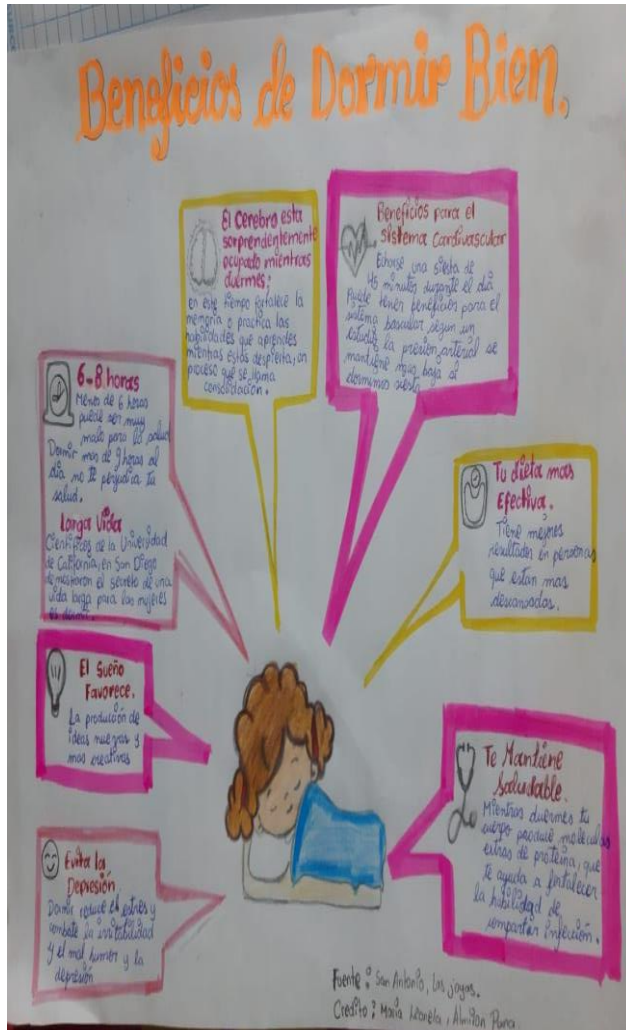 Beneficios de Dormir Bien.
El Cerebro esta
sorprendentemente
ocupado mientras
duermes;
en este tiempo fortalece la
memoria o practica las
habilidades que aprendes
mientras estás despierta, un
proceso que se llama
consolidación.
Beneficios para el
sistema Cardivascular
Echarse una siesta de
45 minutos durante el día
Puede tener beneficios para el
sistema bascular según un
estudio la presión arterial se
mantiene muy baja al
dormirnos siesta
6-8 horas
Menos de 6 horas
puede ser muy
malo para la salud
Dormir mas de 9 horas al
día no te perjudica tu
salud.
Larga Vida
Científicos de la Universidad
de California, en San Diego
demostraron el secreto de una
vida larga para las mujeres
es dormir.
Tu dieta mas
Efectiva.
Tiene mejores
resultados en personas
que estan mas
descansadas.
El Sueño
Favorece.
La producción de
ideas nuevas y
mas creativas
Te Mantiene
Saludable.
Mientras duermes tu
cuerpo produce moleculas
extras de proteína, que
te ayuda a fortalecer
la habilidad de
compartir infección.
Evita la
Depresión
Dormir reduce el estrés y
combate la irritabilidad
y el mal humor y la
depresión
Fuente: San Antonio, Los
Credito: Maria Leonela,